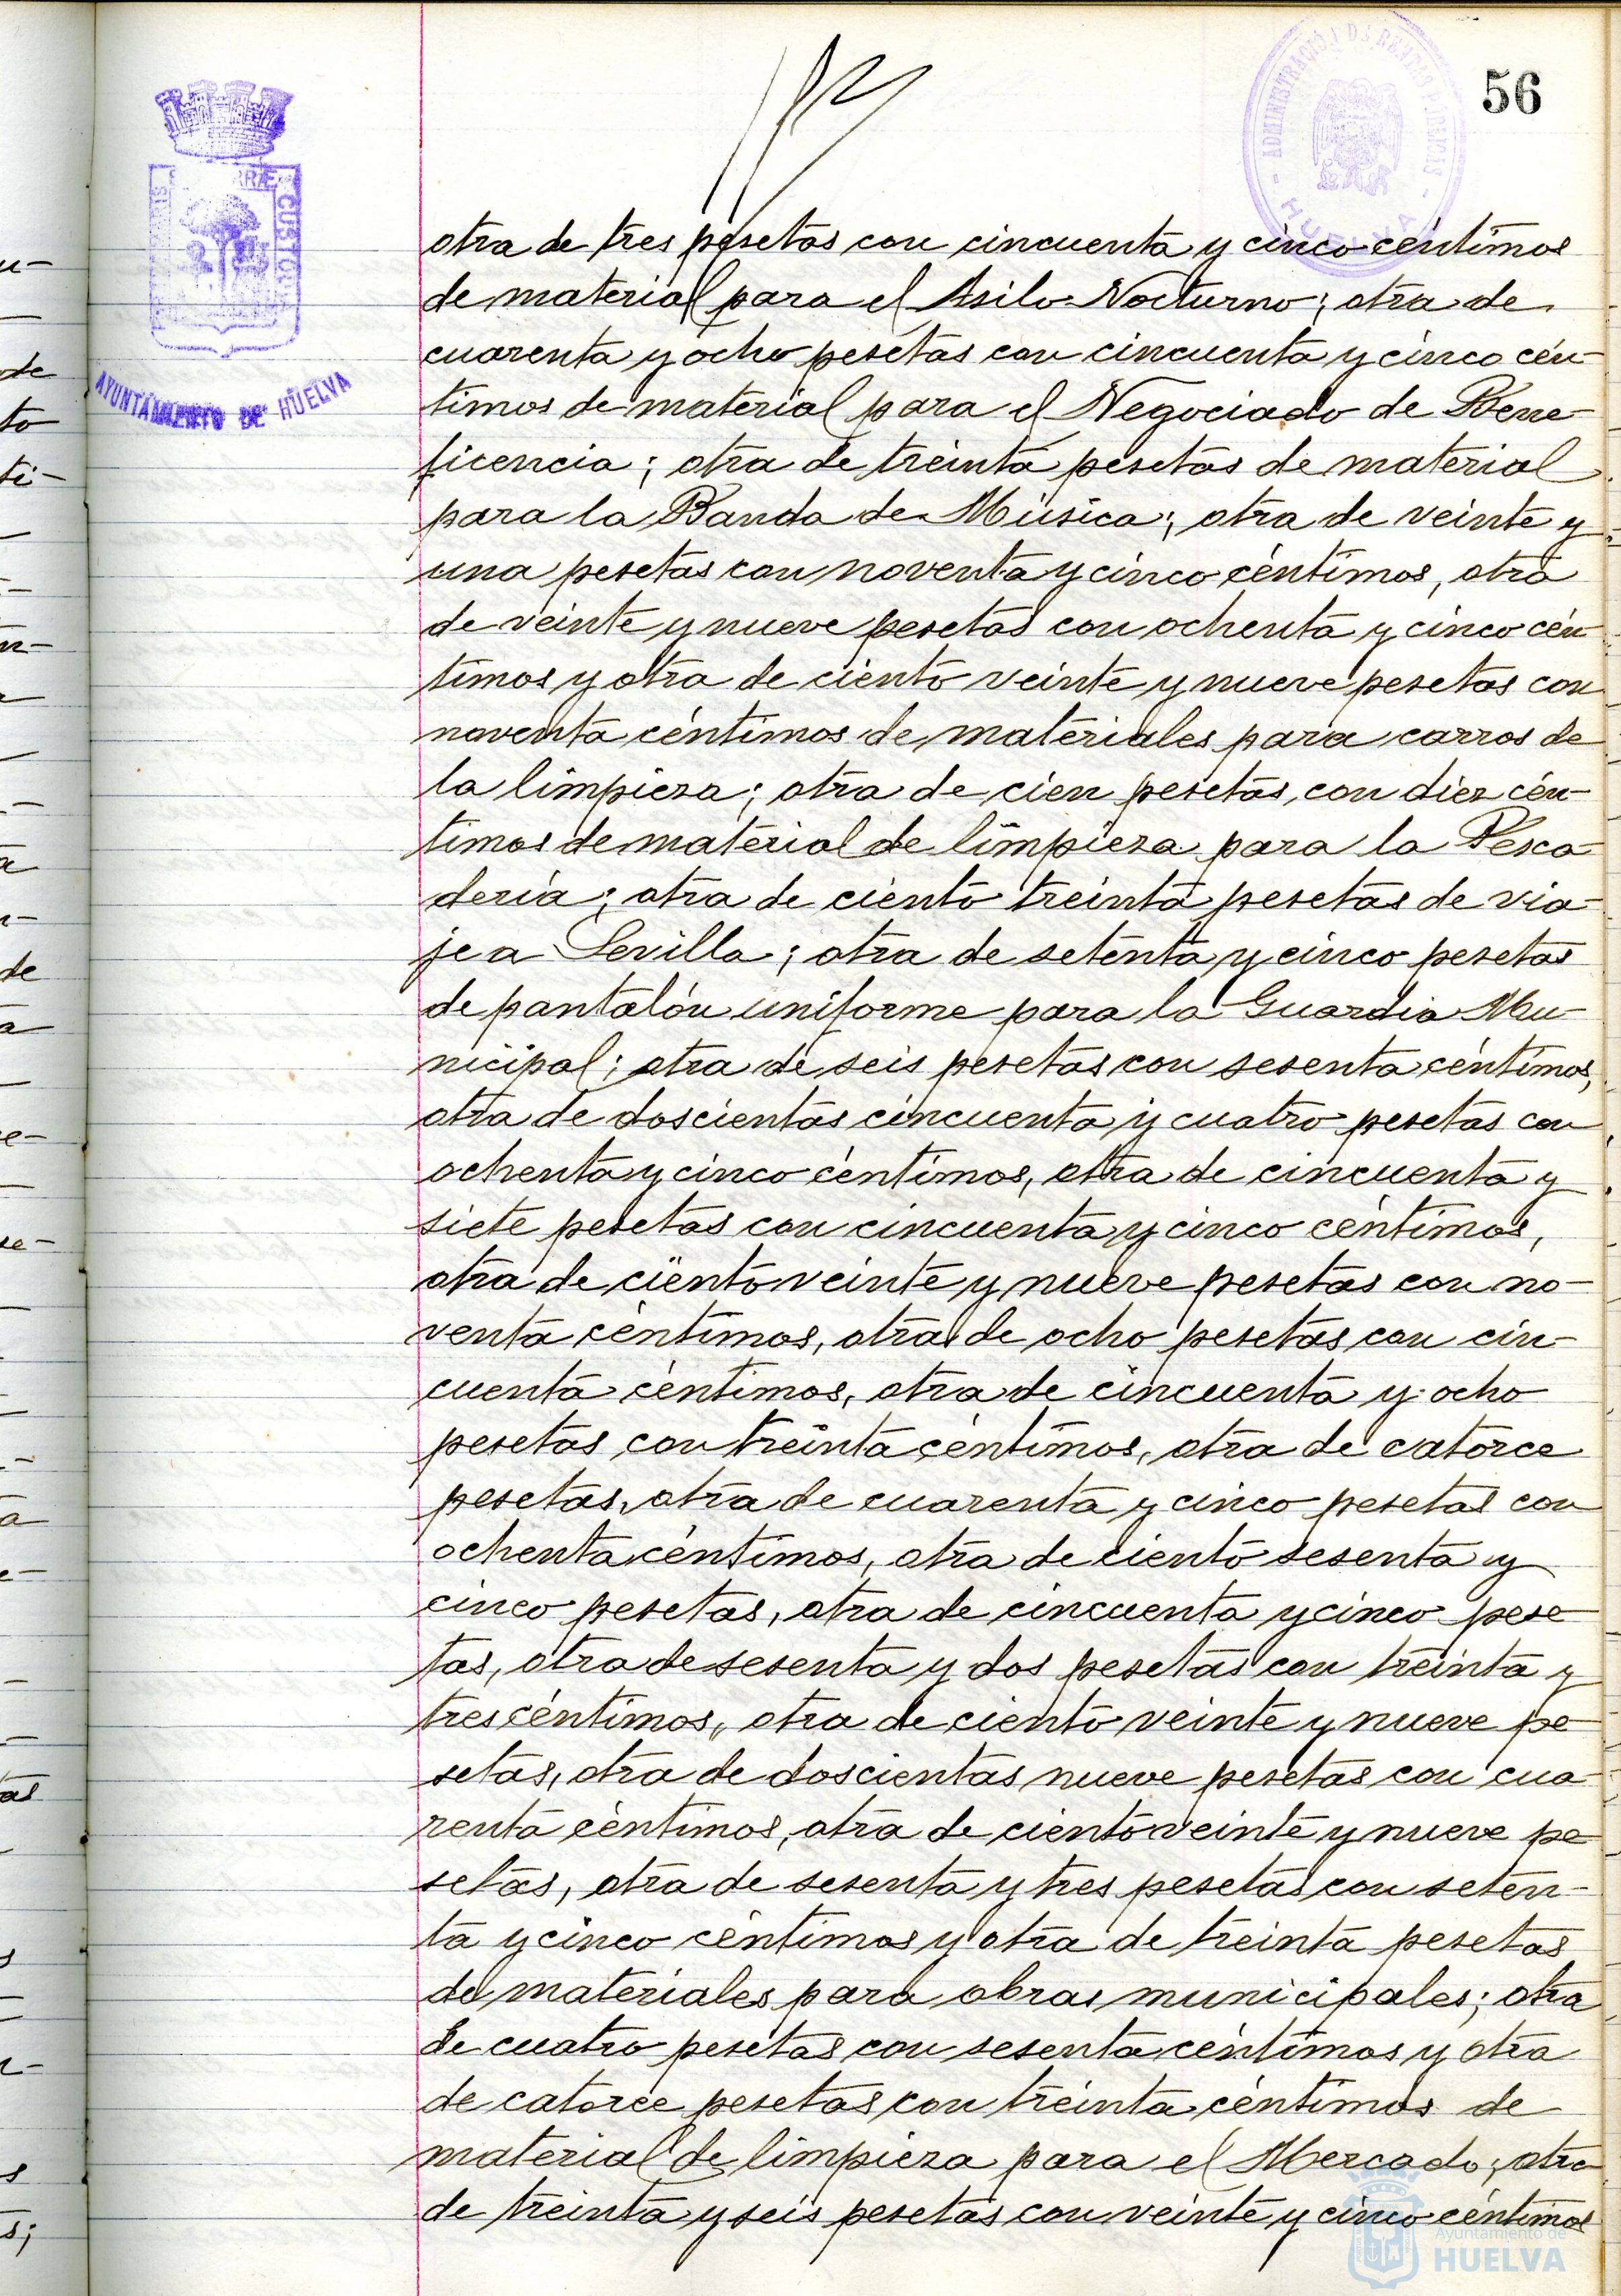 56
ADMINISTRACIÓN DE RENTAS PUBLICAS
HUELVA
CUSTO
AYUNTAMIENTO DE HUELVA
otra de tres pesetas con cincuenta y cinco céntimos
de material para el Asilo Nocturno; otra de
cuarenta y ocho pesetas con cincuenta y cinco cén-
timos de material para el Negociado de Bene-
ficencia; otra de treinta pesetas de material
para la Banda de Música; otra de veinte y
una pesetas con noventa y cinco céntimos, otra
de veinte y nueve pesetas con ochenta y cinco cén
timos y otra de ciento veinte y nueve pesetas con
noventa céntimos de materiales para carros de
la limpieza; otra de cien pesetas con diez cén-
timos de material de limpieza para la Pesca-
dería; otra de ciento treinta pesetas de via-
je a Sevilla; otra de setenta y cinco pesetas
de pantalón uniforme para la Guardia Mu-
nicipal; otra de seis pesetas con sesenta céntimos,
otra de doscientas cincuenta y cuatro pesetas con
ochenta y cinco céntimos, otra de cincuenta y
siete pesetas con cincuenta y cinco céntimos,
otra de ciento veinte y nueve pesetas con no-
venta céntimos, otra de ocho pesetas con cin-
cuenta céntimos, otra de cincuenta y ocho
pesetas con treinta céntimos, otra de catorce
pesetas, otra de cuarenta y cinco pesetas con
ochenta céntimos, otra de ciento sesenta y
cinco pesetas, otra de cincuenta y cinco pese-
tas, otra de sesenta y dos pesetas con treinta y
tres céntimos, otra de ciento veinte y nueve pe-
setas, otra de doscientas nueve pesetas con cua-
renta céntimos, otra de ciento veinte y nueve pe-
setas, otra de sesenta y tres pesetas con seten-
ta y cinco céntimos y otra de treinta pesetas
de materiales para obras municipales; otra
de cuatro pesetas con sesenta céntimos y otra
de catorce pesetas con treinta céntimos de
material de limpieza para el Mercado; otra
de treinta y seis pesetas con veinte y cinco céntimos
Ayuntamiento de
HUELVA